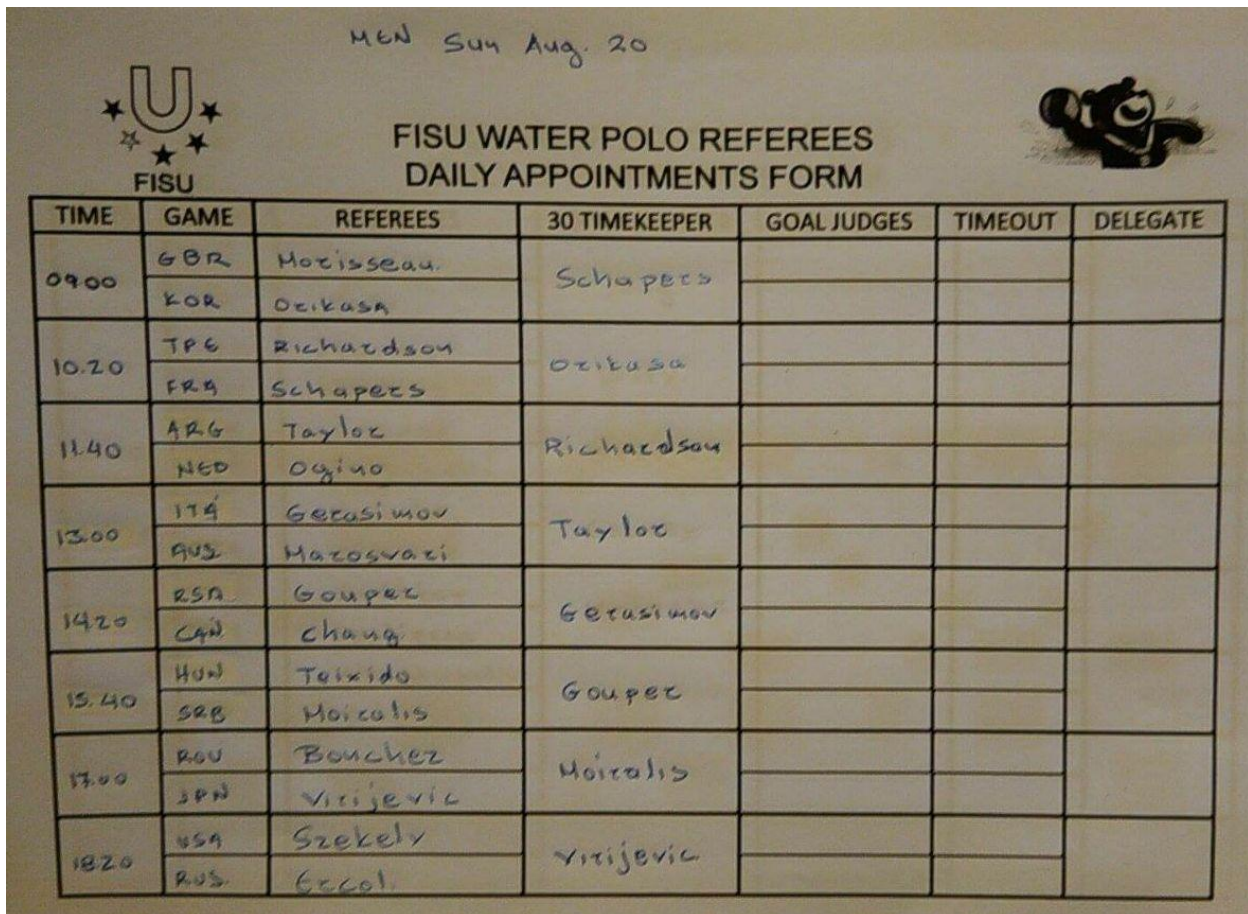 MEN Sun Aug. 20
U
FISU
FISU WATER POLO REFEREES
DAILY APPOINTMENTS FORM
TIME GAME REFEREES 30 TIMEKEEPER GOAL JUDGES TIMEOUT DELEGATE
09.00 GBR Morisseau. Schapers
KOR Orikasa
10.20 TPE Richardson Orikasa
FRA Schapers
11.40 ARG Taylor Richardson
NED Ogino
13.00 ITA Gerasimov Taylor
AUS Marosvari
14.20 RSA Gouper Gerasimov
CAN Chang
15.40 HUN Teixido Gouper
SRB Moiralis
17.00 ROU Bouchez Moiralis
JPN Virijevic
18.20 USA Szekely Virijevic
RUS Ercol.